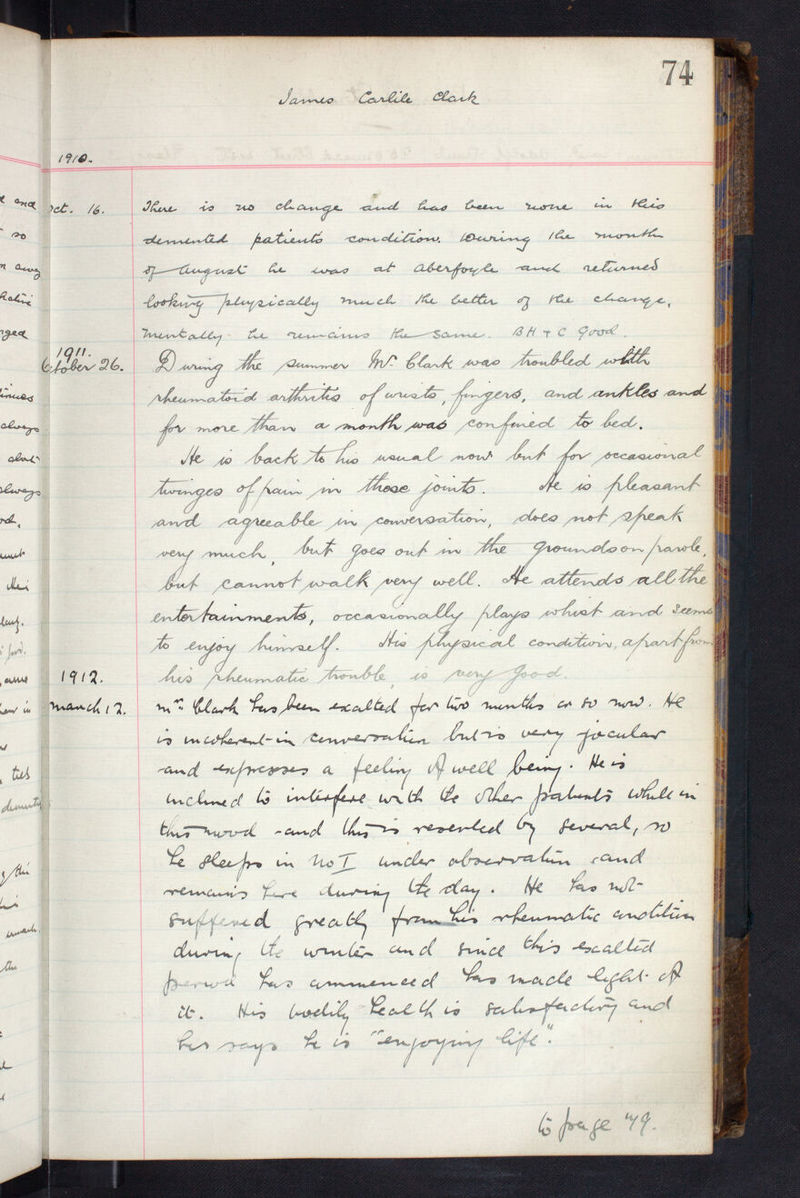 74
James Carlile Clark
1910.
Oct. 16. There is no change and has been none in this
demented patient's condition. During the month
of August he was at Aberfoyle and returned
looking physically much the better of the change.
Mentally he remains the same. B H & C Good.
1911.
October 26. During the summer Mr. Clark was troubled with
rheumatoid arthritis of wrists, fingers, and ankles and
for more than a month was confined to bed.
He is back to his usual now but for occasional
twinges of pain in those joints. He is pleasant
and agreeable in conversation, does not speak
very much, but goes out in the grounds on parole,
but cannot walk very well. He attends all the
entertainments, occasionally plays whist and seems
to enjoy himself. His physical condition, apart from
his rheumatic trouble, is very good.
1912.
March 12. Mr. Clark has been exalted for two months or so now. He
is incoherent in conversation but is very jocular
and expresses a feeling of well being. He is
inclined to interfere with the other patients while in
this mood and this is resented by several, so
he sleeps in No I under observation and
remains here during the day. He has not
suffered greatly from his rheumatic condition
during the winter and since this exalted
period has commenced has made light of
it. His bodily health is satisfactory and
he says he is "enjoying life".
to page 79.